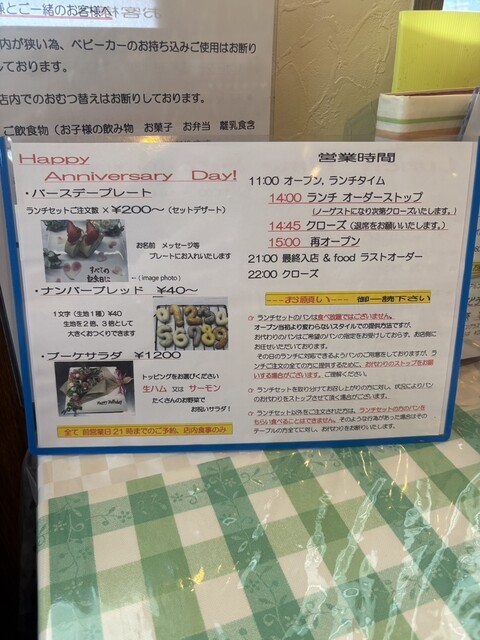 様とご一緒のお客様へ
内が狭い為、ベビーカーのお持ち込みご使用はお断り
しております。
店内でのおむつ替えはお断りしております。
ご飲食物（お子様の飲み物　お菓子　お弁当　離乳食含
Happy
Anniversary Day!
・バースデープレート
ランチセットご注文数 × ¥200〜（セットデザート）
お名前　メッセージ等
プレートにお入れいたします
すべての
記念日に
←( image photo )
・ナンバーブレッド　¥40〜
1文字（生地1種）¥40
生地を2倍、3倍として
大きくおつくりできます
・ブーケサラダ　¥1200
トッピングをお選びください
生ハム　又は　サーモン
たくさんのお野菜で
お祝いサラダ！
全て 前営業日21時までのご予約、店内食事のみ
営業時間
11:00 オープン, ランチタイム
14:00 ランチ オーダーストップ
（ノーゲストになり次第クローズいたします。）
14:45 クローズ（退席をお願いいたします。）
15:00　再オープン
21:00 最終入店 & food ラストオーダー
22:00 クローズ
---お願い---　御一読下さい
☞ ランチセットのパンは食べ放題ではございません。
オープン当初より変わらないスタイルでの提供方法ですが、
おかわりのパンはご希望のパンの指定をお受けしておらず、お店側に
お任せいただいております。
その日のランチに対応できるようパンのご用意をしておりますが、ラ
ンチご注文の全ての方に提供するために、おかわりのストップをお願
いする場合がございます。ご理解ください。
☞ ランチセットを取り分けてお召し上がりの方に対し、状況によりパン
のおかわりをストップさせて頂く場合がございます。
☞ ランチセット以外をご注文された方は、ランチセットの方のパンを
もらい食べることはできません。そのような行為があった場合はその
テーブルの方全てに対し、お代わりをお断りいたします。